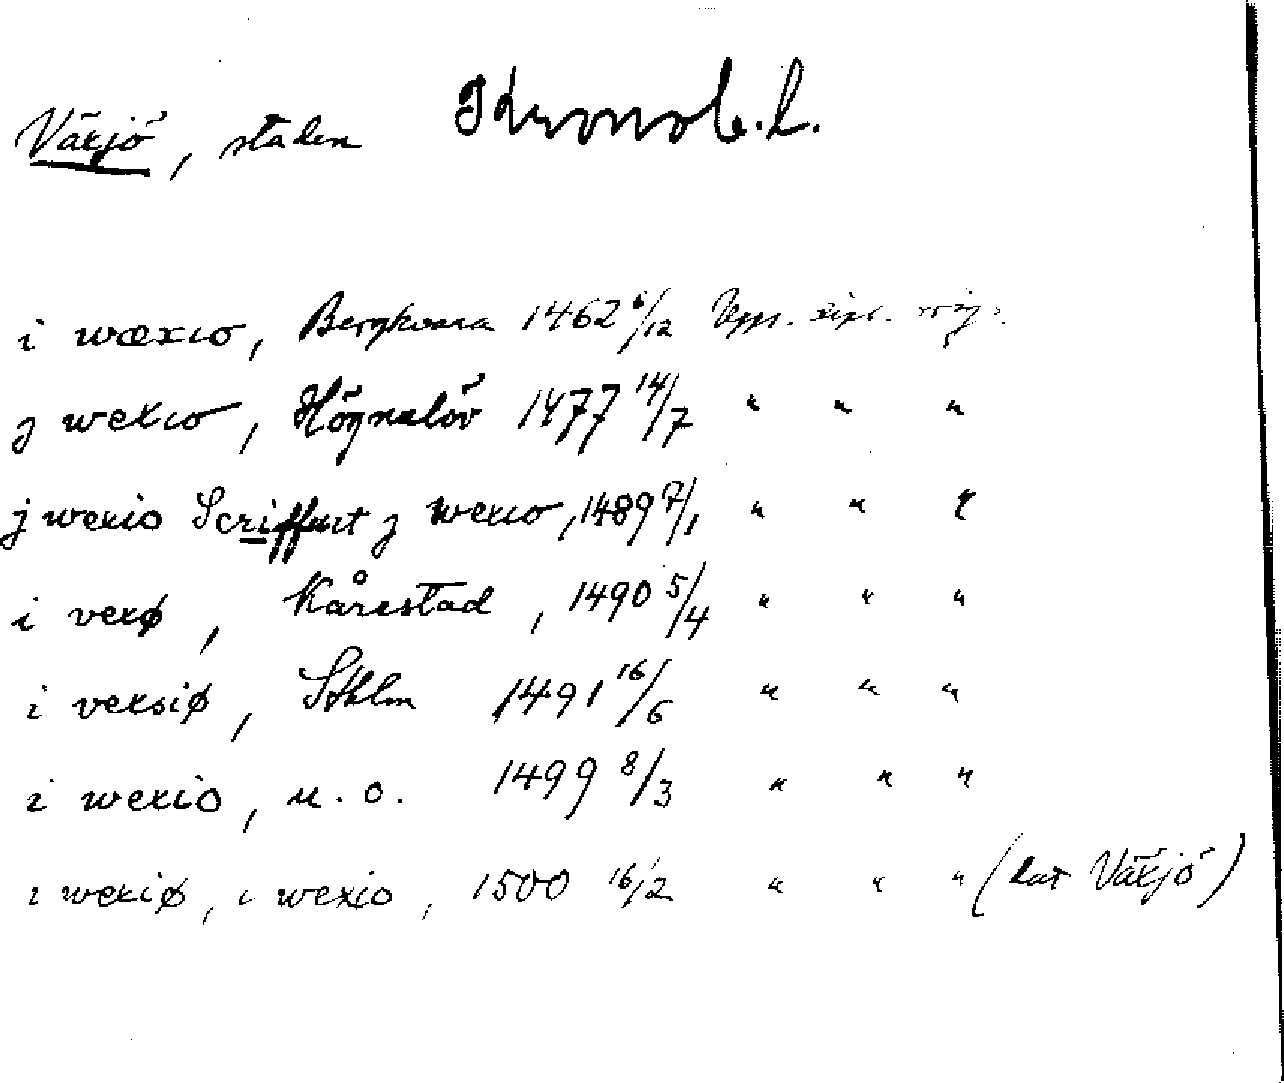 Växjö, staden Kronob. l.
i wæxiø, Bergkvara 1462 6/12 Upps. dipl. reg.
j wexiø, Högnalöv 1477 14/7 " " "
j wexio Scriffuit j wexiø, 1489 7/1 " " "
i vexø, Kårestad, 1490 5/4 " " "
i vexsiø, Sthlm 1491 16/6 " " "
i wexio, u. o. 1499 8/3 " " "
i wexiø, i wexio, 1500 16/2 " " " (dat Växjö)